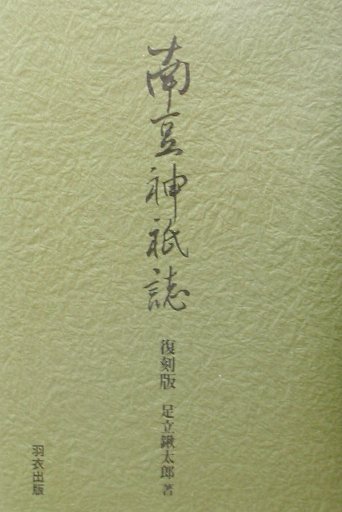 南豆神祇誌
復刻版 足立鍬太郎著
羽衣出版